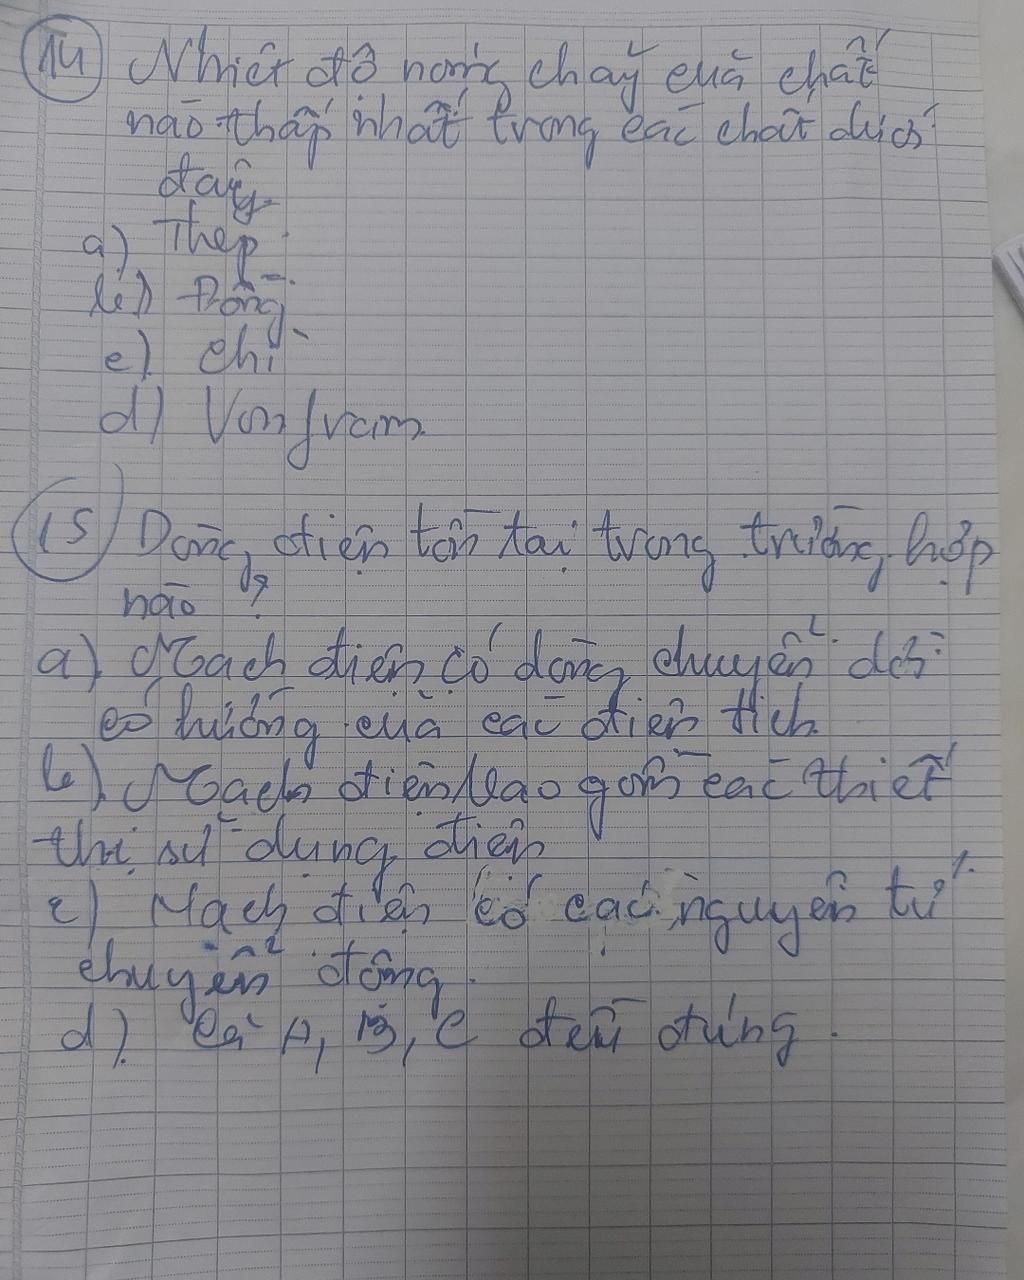 14 Nhiệt độ nóng chảy của chất
nào thấp nhất trong các chất dưới
đây
a) Thép
b) Đồng
c) chì
d) Vonfram
15 Dòng điện tồn tại trong trường hợp
nào ?
a) Mạch điện có dòng chuyển dời
có hướng của các điện tích
b) Mạch điện bao gồm các thiết
thị sử dụng điện
c) Mạch điện có các nguyên tử
chuyển động.
d) Cả A, B, C đều đúng.